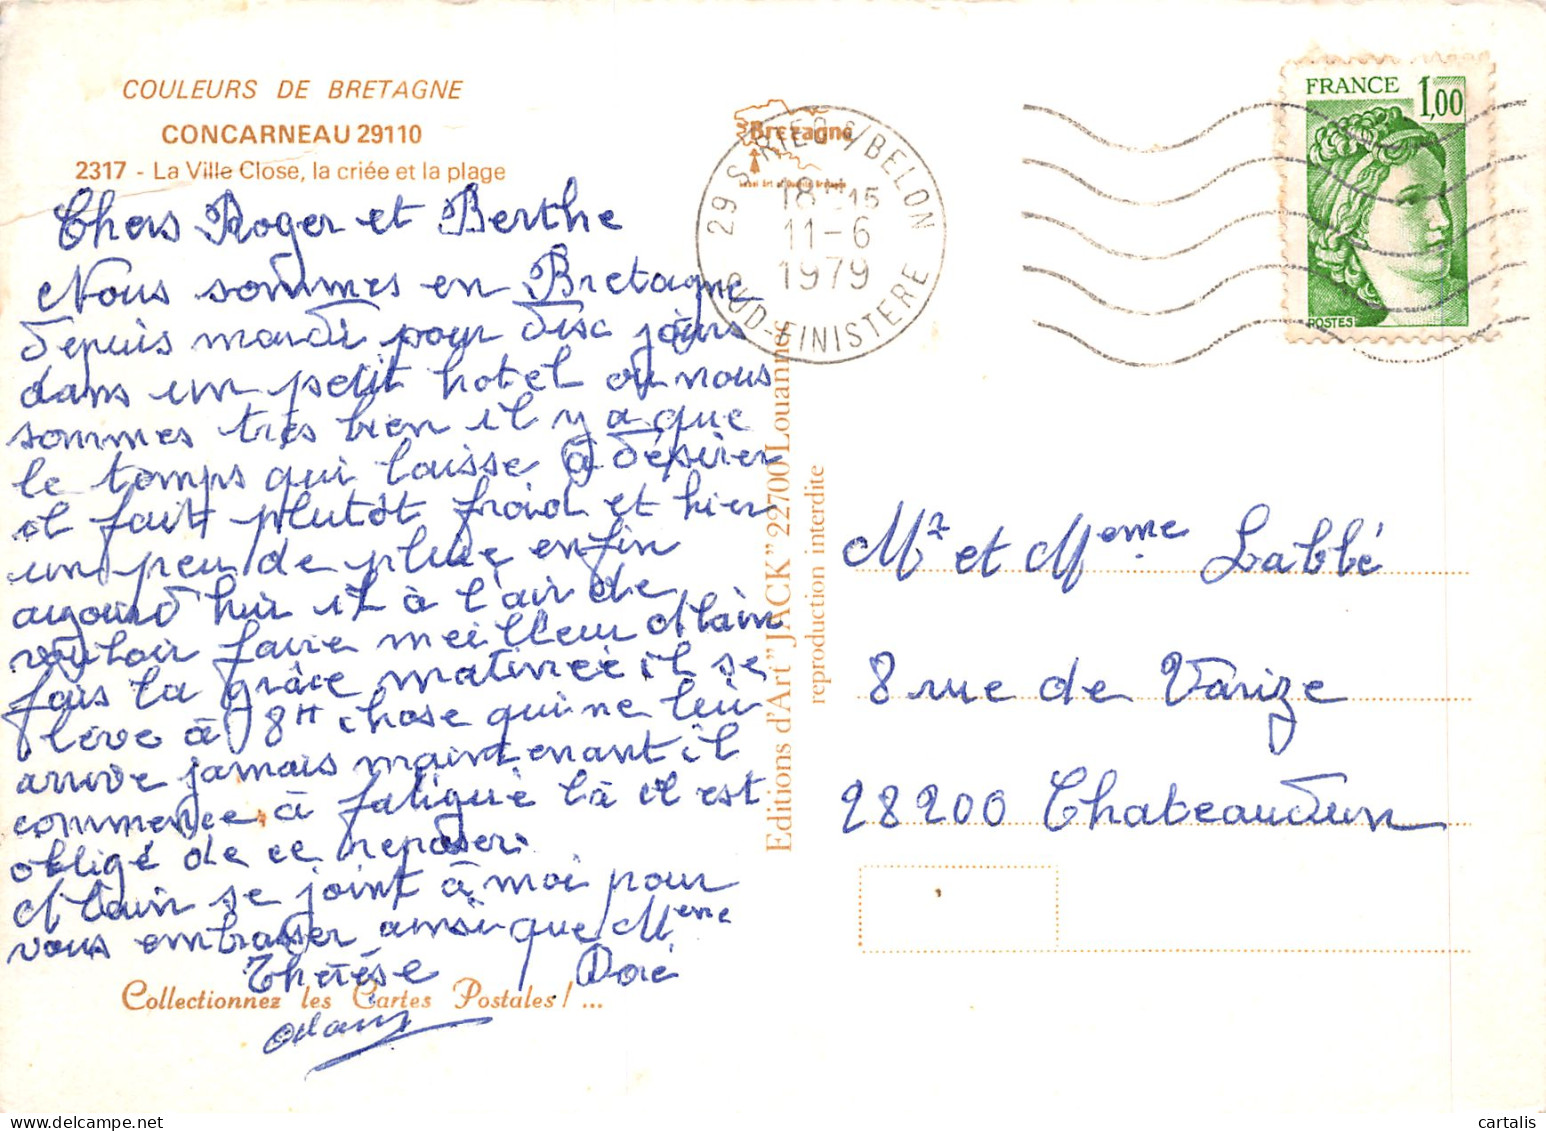 COULEURS DE BRETAGNE
CONCARNEAU 29110
2317 - La Ville Close, la criée et la plage
Chers Roger et Berthe
Nous sommes en Bretagne
depuis mardi pour disc jours
dans un petit hotel ou nous
sommes très bien il y a que
le temps qui laisse à désirer
il fait plutôt froid et hier
un peu de pluie enfin
aujourd'hui il à l'air de
vouloir faire meilleur Alain
fais la grâce matinée il se
lève à 8H chose qui ne lui
arrive jamais maintenant il
commence à fatigué là il est
obligé de ce reposer.
Alain se joint à moi pour
vous embrasser ainsi que Meme
Thérèse Doré
Alain
Collectionnez les Cartes Postales! ...
Bretagne
29 S RIEC S/BELON
18H15
11-6
1979
SUD-FINISTERE
Editions d'Art "JACK" 22700 Louannec
reproduction interdite
FRANCE 1,00
POSTES
Mr et Meme Labbé
8 rue de Varize
28200 Chateaudun
cartalis